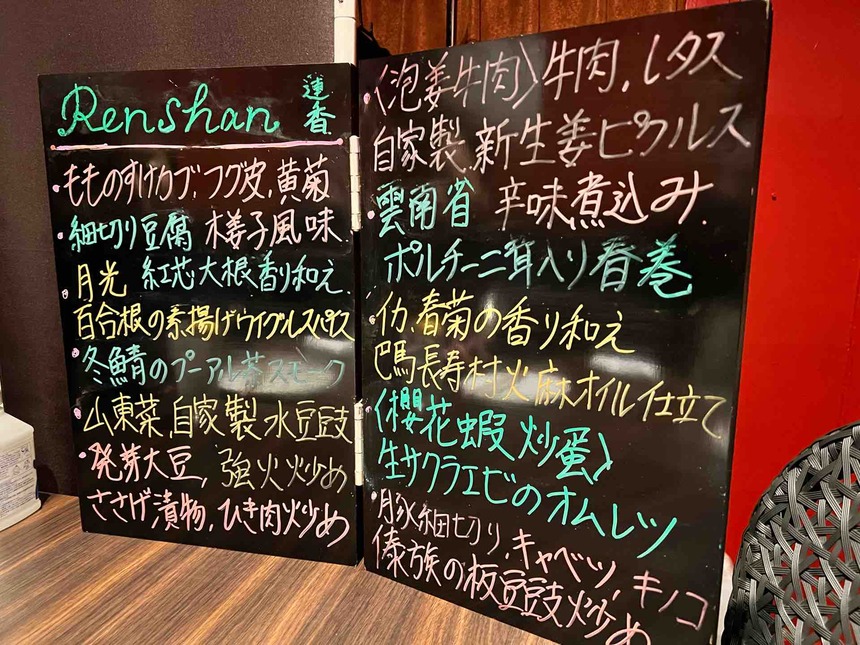 Renshan 蓮香
もものすけカブ、フグ皮、黄菊
細切り豆腐 木姜子風味
月光 紅芯大根香り和え
百合根の素揚げウイグルスパイス
冬鯖のプーアル茶スモーク
山東菜、自家製水豆豉
発芽大豆、強火炒め
ささげ漬物、ひき肉炒め
〈泡姜牛肉〉牛肉、レタス
自家製、新生姜ピクルス
雲南省 辛味煮込み
ポルチーニ茸入り春巻
イカ、春菊の香り和え
巴馬長寿村火麻オイル仕立て
〈櫻花蝦炒蛋〉
生サクラエビのオムレツ
豚細切り、キャベツ、キノコ
傣族の板豆豉炒め